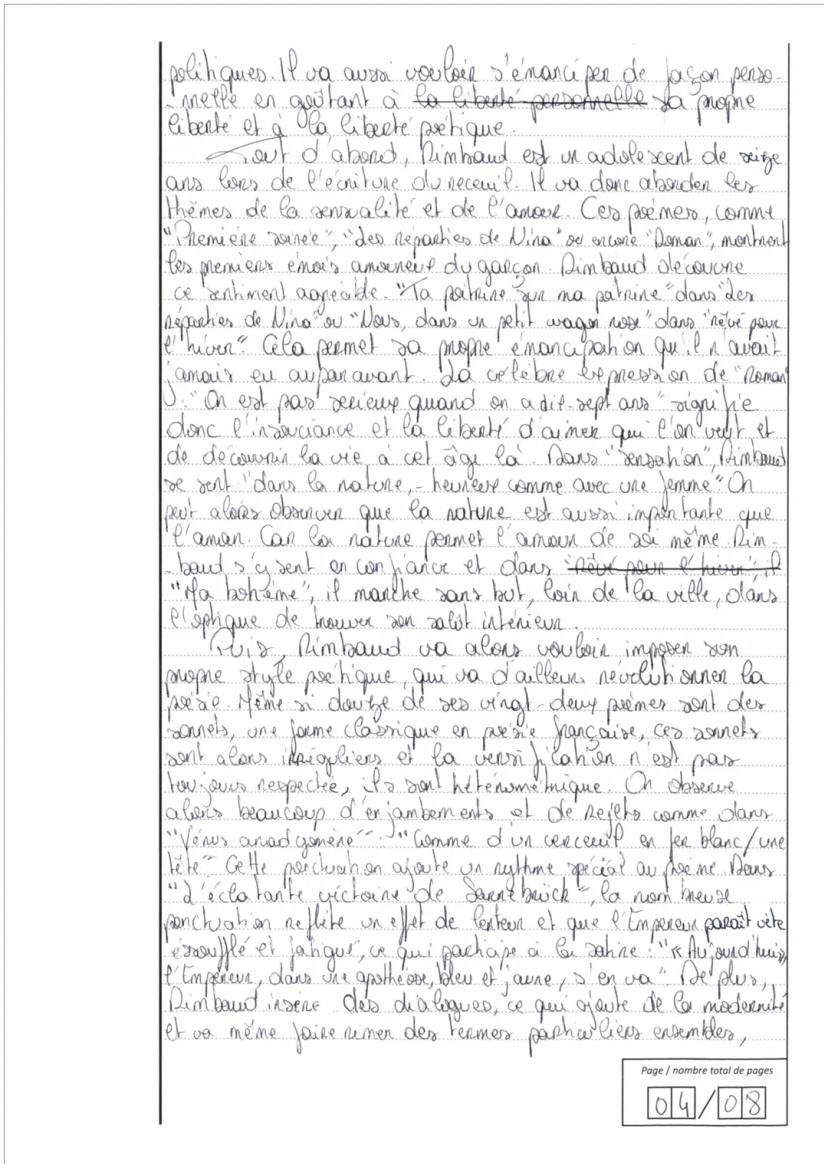 politiques. Il va aussi vouloir s'émanciper de façon perso-
-nnelle en goûtant à la liberté personnelle sa propre
liberté et à la liberté poétique.
Tout d'abord, Rimbaud est un adolescent de seize
ans lors de l'écriture du receuil. Il va donc aborder les
thèmes de la sensualité et de l'amour. Ces poèmes, comme
"Première soirée", "Les reparties de Nina" ou encore "Roman", montrent
les premiers émois amoureux du garçon. Rimbaud découvre
ce sentiment agréable. "Ta poitrine sur ma poitrine" dans "Les
réparties de Nina" ou "Nous, dans un petit wagon rose" dans "rêvé pour
l'hiver". Cela permet sa propre émancipation qu'il n'avait
jamais eu auparavant. La célèbre expression de "Roman"
: "On est pas serieux quand on a dix-sept ans" signifie
donc l'insouciance et la liberté d'aimer qui l'on veut et
de découvrir la vie, à cet âge là. Dans "Sensation", Rimbaud
se sent "dans la nature, - heureux comme avec une femme". On
peut alors observer que la nature est aussi importante que
l'amour. Car la nature permet l'amour de soi même Rim-
-baud s'y sent en confiance et dans "rêvé pour l'hiver", il
"Ma bohème", il marche sans but, loin de la ville, dans
l'optique de trouver son salut intérieur.
Puis, Rimbaud va alors vouloir imposer son
propre style poétique, qui va d'ailleurs révolutionner la
poésie. Même si douze de ses vingt-deux poèmes sont des
sonnets, une forme classique en poésie française, ces sonnets
sont alors irréguliers et la versification n'est pas
toujours respectée, ils sont hétérométrique. On observe
alors beaucoup d'enjambements et de rejets comme dans
"Vénus anadyomène" : "Comme d'un cerceuil en fer blanc/une
tête" Cette ponctuation ajoute un rythme spécial au poème. Dans
"L'éclatante victoire de Sarrebrück", la nombreuse
ponctuation reflète un effet de lenteur et que l'Empereur paraît vite
éssoufflé et fatigué, ce qui participe à la satire : "« Aujourd'hui,
l'Empereur, dans une apothéose, bleu et jaune, s'en va" De plus,
Rimbaud insère des dialogues, ce qui ajoute de la modernité
et va même faire rimer des termes particuliers ensembles,
Page / nombre total de pages
04/08